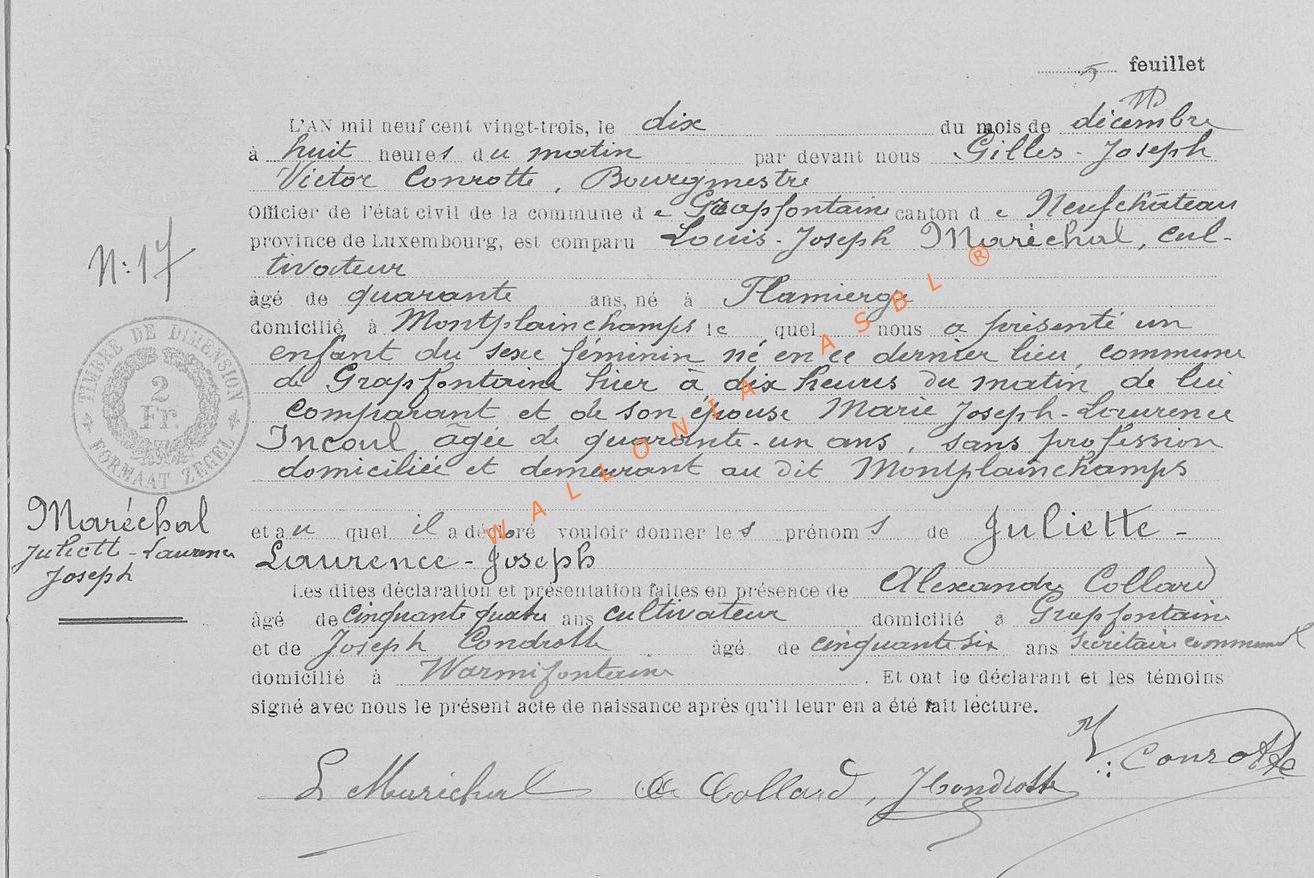 5 feuillet
L'AN mil neuf cent vingt-trois, le dix du mois de décembre
à huit heures du matin par devant nous Gilles-Joseph
Victor Conrotte, Bourgmestre
Officier de l'état civil de la commune de Grapfontaine canton de Neufchâteau
province de Luxembourg, est comparu Louis-Joseph Maréchal, cul-
tivateur
âgé de quarante ans, né à Flamierge
domicilié à Montplainchamps lequel nous a présenté un
enfant du sexe féminin né en ce dernier lieu, commune
de Grapfontaine hier à dix heures du matin, de lui
comparant et de son épouse Marie Joseph-Laurence
Incoul âgée de quarante-un ans, sans profession
domiciliée et demeurant au dit Montplainchamps
et au quel il a déclaré vouloir donner les prénoms de Juliette-
Laurence-Joseph
Les dites déclaration et présentation faites en présence de Alexandre Collard
âgé de cinquante quatre ans cultivateur domicilié à Grapfontaine
et de Joseph Condrotte âgé de cinquante six ans secrétaire communal
domicilié à Warmifontaine. Et ont le déclarant et les témoins
signé avec nous le présent acte de naissance après qu'il leur en a été fait lecture.
L Maréchal A Collard, J Condrotte V. Conrotte
N: 17
TIMBRE DE DIMENSION
2
Fr.
FORMAAT ZEGEL
Maréchal
Juliette-Laurence
Joseph
WALLONIA ASBL ®